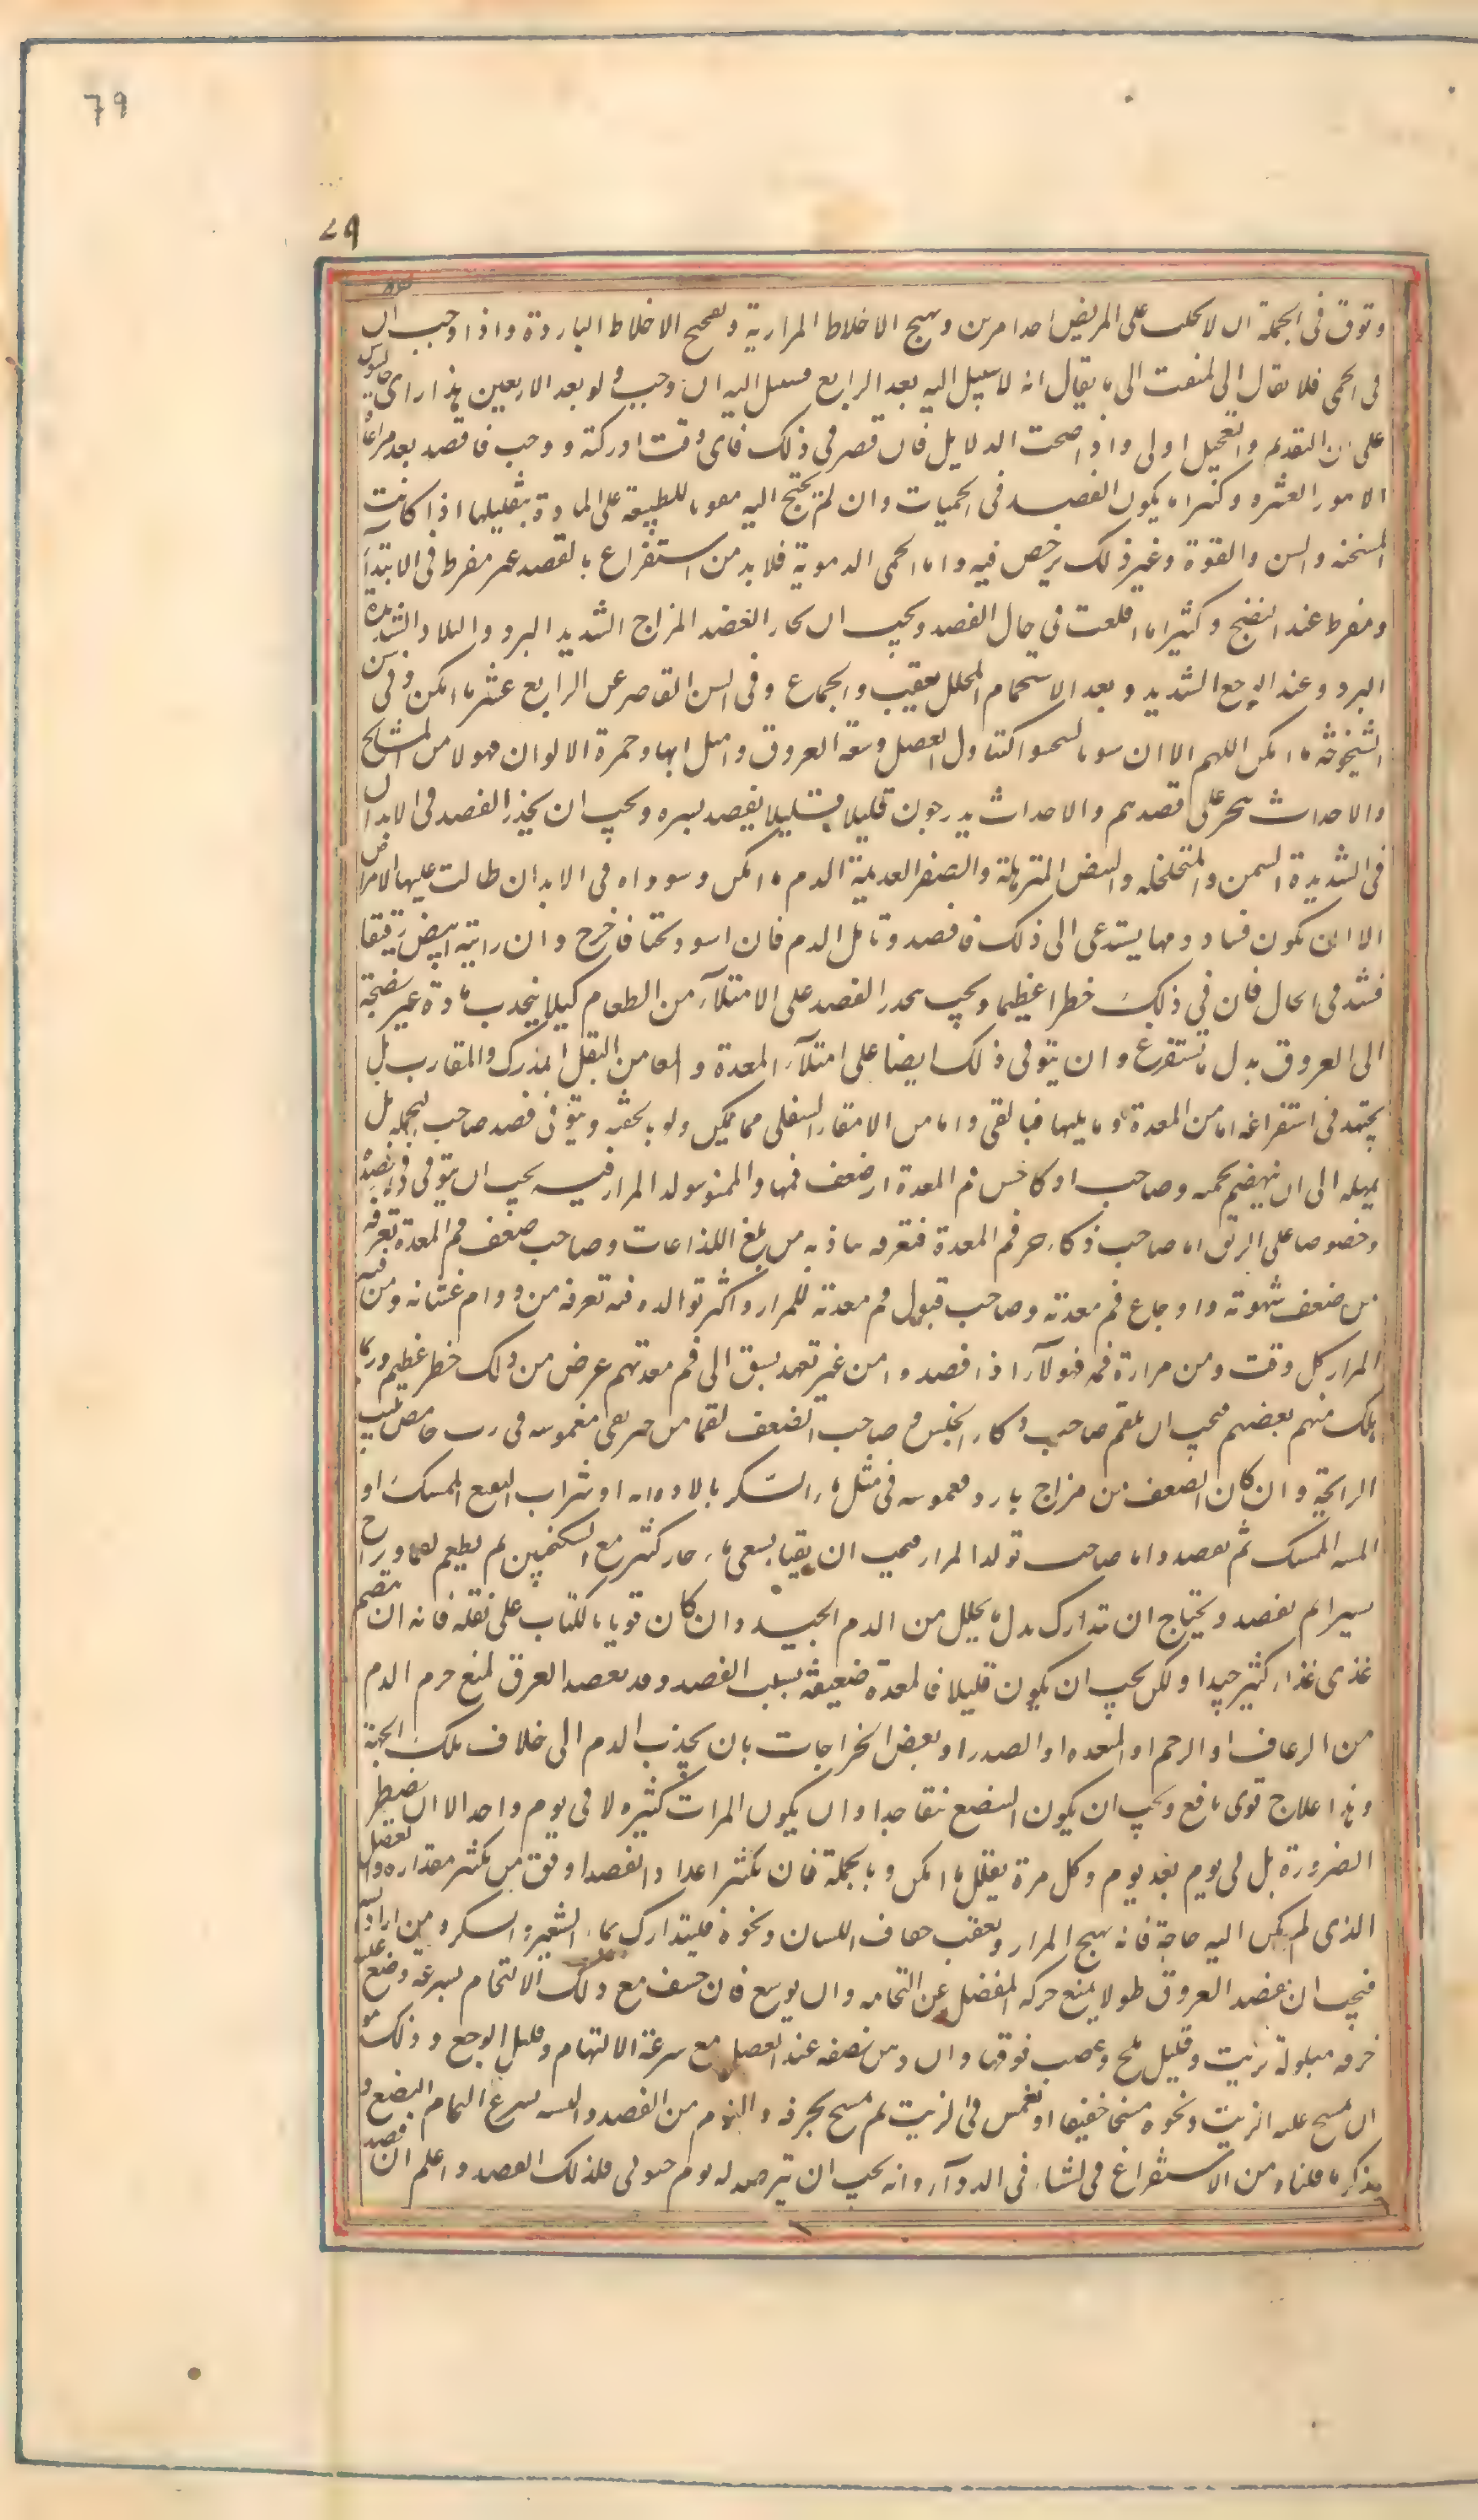 79
٧٩
وتوق فى الجملة ان لا تجلب على المريض احد امرين وتهيج الاخلاط المرارية وتفجيج الاخلاط الباردة واذا وجب ان
فى الحمى فلا يلتفت الى ما يقال انه لا سبيل اليه بعد الرابع فسبيل اليه ان وجب ولو بعد الاربعين هذا راى جالينوس
على ان التقديم والتعجيل اولى واذا صحت الدلايل فان قصر فى ذلك فاى وقت ادركته ووجب فافصد بعد مراعاة
الامور العشرة وكثيرا ما يكون الفصد فى الحميات وان لم يحتج اليه مقويا للطبيعة على المادة بتقليلها اذا كانت
السخنه والسن والقوة وغير ذلك يرخص فيه واما الحمى الدموية فلا بد من استفراغ بالفصد غير مفرط فى الابتدآ
ومفرط عند النضج وكثيرا ما اقلعت فى حال الفصد ويجب ان يحذر الفصد المزاج الشديد البرد والبلاد الشديدة
البرد وعند الوجع الشديد وبعد الاستحمام المحلل بعقيب والجماع وفى السن القاصر عن الرابع عشر ما امكن وفى سن
الشيخوخة ما امكن اللهم الا ان العضل وسعة العروق وامتلاءها وحمرة الالوان فهولا من المشايخ
والاحداث على فصدهم والاحداث يدرجون قليلا قليلا بفصد يسير ويجب ان يحذر الفصد فى الابدان
فى الشديدة السمن والمتخلخلة والبيض المترهلة والصفر العديمة الدم ما امكن و فى الابدان طالت عليها الامراض
الا ان يكون فساد دمها يستدعى الى ذلك فافصد وتامل الدم فان اسود ثخنا فاخرج وان رايته ابيض رقيقا
فشد فى الحال فان فى ذلك خطرا عظيما ويجب يحذر الفصد على الامتلآء من الطعام كيلا ينجذب مادة غير نضجة
الى العروق بدل ما تستفرغ وان يتوقى ذلك ايضا على امتلآء المعدة والمعا من الثقل المدرك والمقارب بل
يجتهد فى استفراغه اما من المعدة وما يليها فبالقى واما من الامعاء السفلى فما يمكن ولو بالحقنه ويتوقى فصد صاحب التخمه بل
يمهله الى ان ينهضم تخمه وصاحب ذكاء حس فم المعدة او ضعف فمها والممنو بتولد المرار فيه يجب ان يتوقى فى فصده
وخصوصا على الريق اما صاحب ذكاء حس فم المعدة فتعرفه بتاذيه من بلغ اللذاعات وصاحب ضعف فم المعدة تعرفه
من ضعف شهوته واوجاع فم معدته وصاحب قبول فم معدته للمرار واكثر تولده فيه تعرفه من دوام غثيانه ومن قيه
المرار كل وقت ومن مرارة فمه فهولآء اذا فصدوا من غير تعهد سبق الى فم معدتهم عرض من ذلك خطر عظيم وربما
هلك منهم بعضهم فيجب ان يلقم صاحب ذكاء الحس وصاحب الضعف لقما من خبز نقى مغموسه فى رب حامض طيب
الرايحة وان كان الضعف من مزاج بارد فمغموسه فى مثل ماء السكر بالافاويه او شراب النعنع الممسك او
الميبه الممسك ثم يفصد واما صاحب تولد المرار فيجب ان يقيا بسقى ماء حار كثير مع السكنجبين ثم يطعم لقما ويراح
يسيرا ثم يفصد ويحتاج ان تتدارك بدل ما يحلل من الدم الجيد وان كان قويا بالكباب على ثقله فانه ان انهضم
غذى غذاء كثير جيدا ولكن يجب ان يكون قليلا فالمعدة ضعيفة بسبب الفصد وقد يفصد العرق لمنع نزف الدم
من الرعاف او الرحم او المقعده او الصدر او بعض الخراجات بان يجذب الدم الى خلاف تلك الجهة
وهذا علاج قوى نافع ويجب ان يكون البضع ضيقا جدا وان يكون المرات كثيره لا فى يوم واحد الا ان يضطر
الضرورة بل فى يوم بعد يوم وكل مرة يقلل ما امكن وبالجملة فان تكثير اعداد الفصد اوفق من تكثير مقداره والفصد
الذى لم يكن اليه حاجة فانه يهيج المرار ويعقب جفاف اللسان ونحوه فليتدارك بماء الشعير والسكر ومن اراد التثنيه
فيجب ان يفصد العروق طولا ليمنع حركه المفصل عن التحامه وان يوسع فان خيف مع ذلك الالتحام بسرعة وضع عليه
خرقه مبلولة بزيت وقليل ملح وعصب فوقها وان دهن مبضعه عند الفصد منع سرعة الالتحام وقلل الوجع وذلك هو
ان يمسح عليه الزيت ونحوه مسحا خفيفا او يغمس فى الزيت ثم يمسح بخرقه والنوم بين الفصد والتثنيه يسرع التحام البضع و
تذكر ما قلناه من الاستفراغ فى الشتاء فى الدوآء وانه يجب ان يترصد له يوم جنوبى فكذلك الفصد واعلم ان فصد